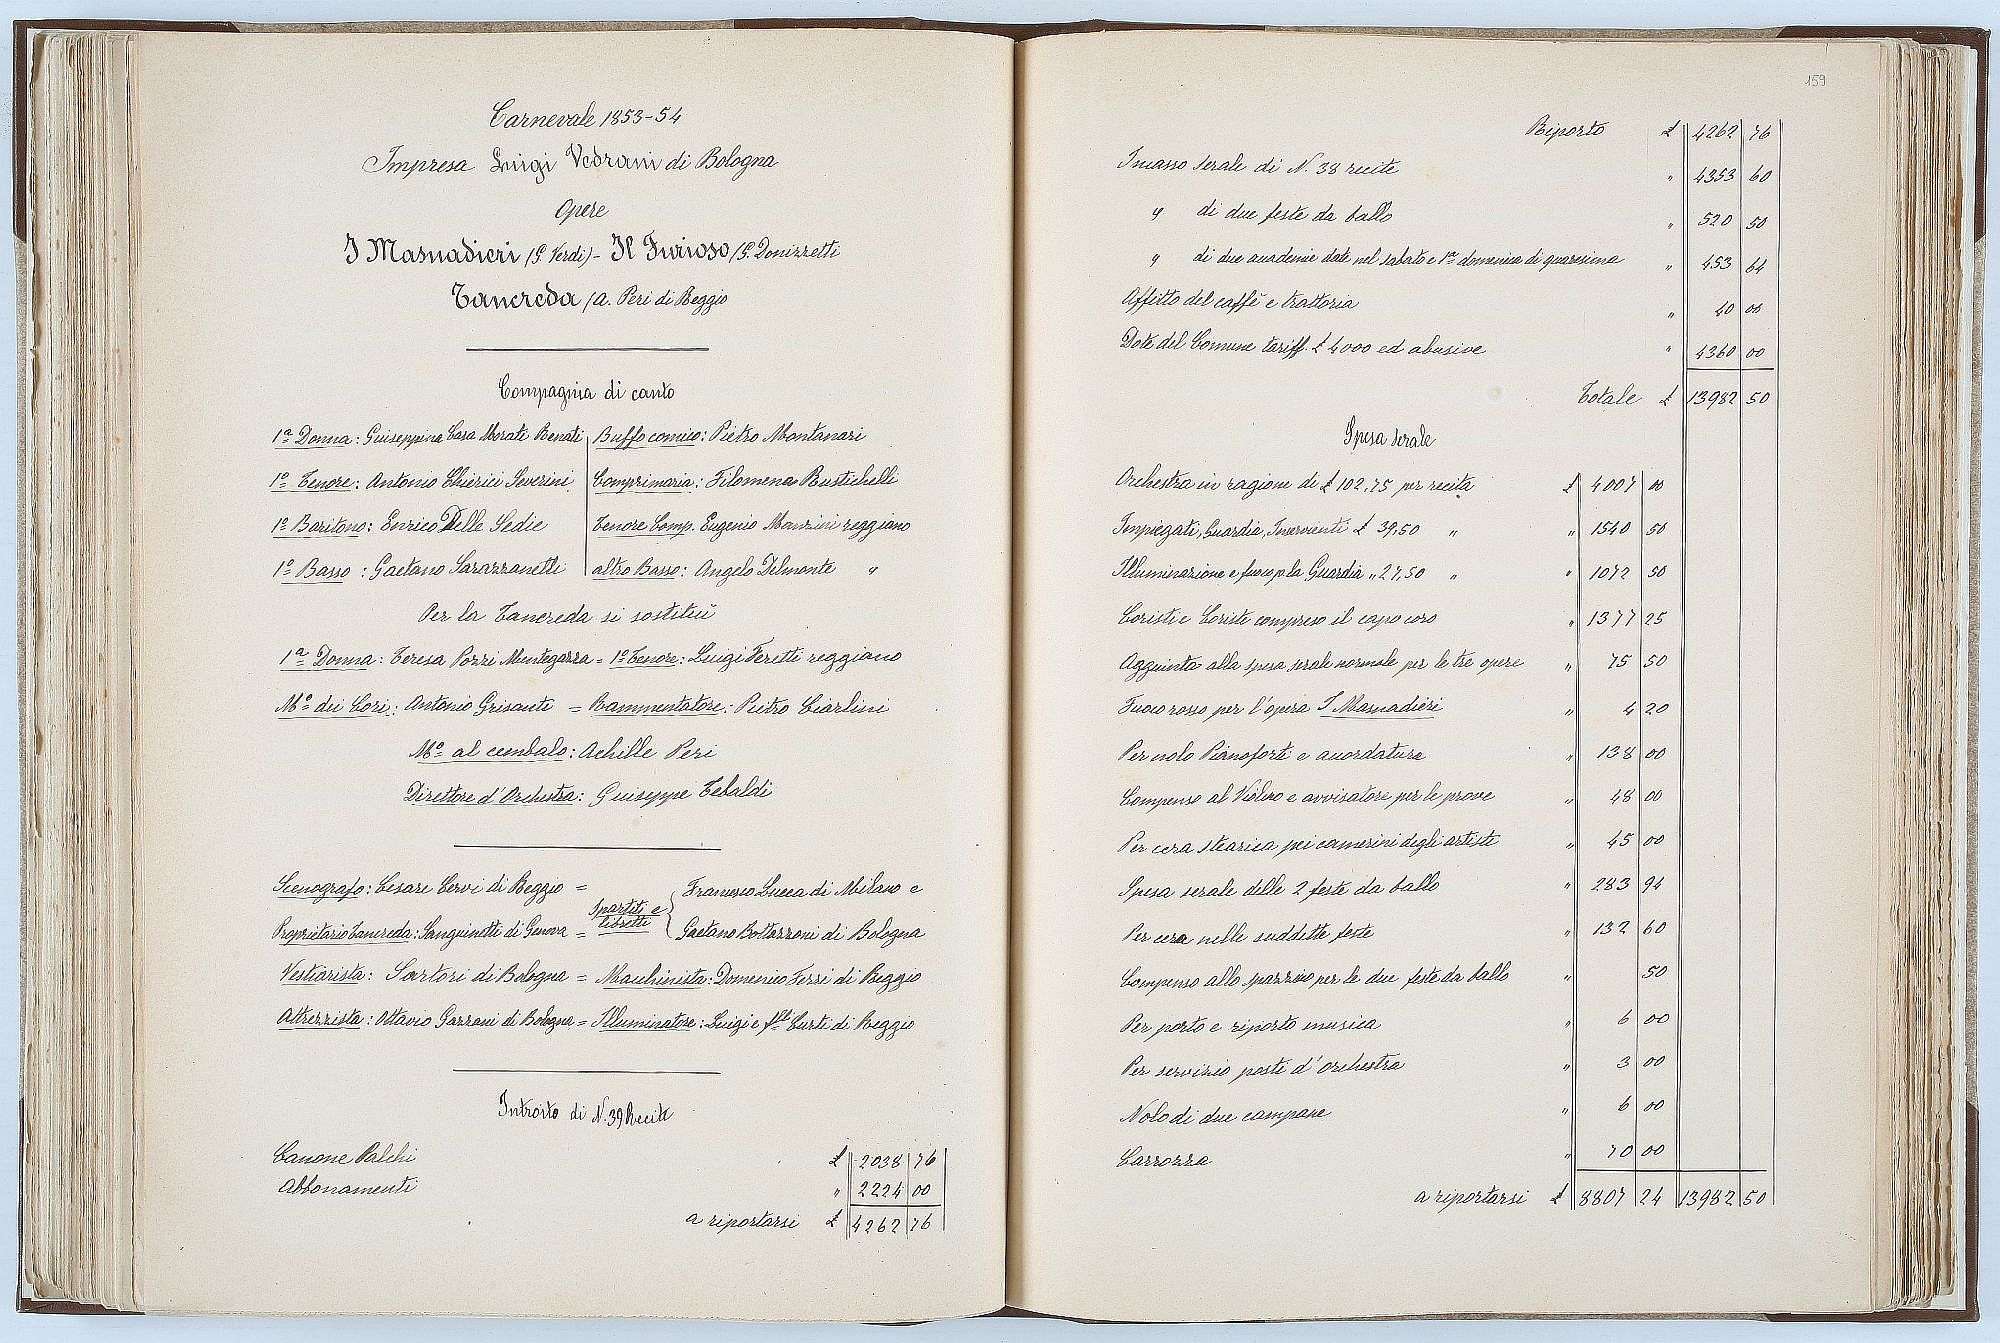 Carnevale 1853-54
Impresa Luigi Vedrani di Bologna
Opere
I Masnadieri (G. Verdi) - Il Furioso (G. Donizzetti
Tancreda (A. Peri di Reggio
Compagnia di canto
1ª Donna: Guiseppina Casa Morati Benati Buffo comico: Pietro Montanari
1º Tenore: Antonio Chierici Severini Comprimaria: Filomena Rustichelli
1º Baritono: Enrico Delle Sedie Tenore Comp. Eugenio Manzini reggiano
1º Basso: Gaetano Sarazzanetti altro Basso: Angelo Delmonte "
Per la Tancreda si sostituì
1ª Donna: Teresa Pozzi Mantegazza = 1º Tenore: Luigi Feretti reggiano
Mº dei Cori: Antonio Grisanti = Rammentatore: Pietro Ciarlini
Mº al cembalo: Achille Peri
Direttore d'Orchestra: Guiseppe Tebaldi
Scenografo: Cesare Cervi di Reggio = Francesco Lucca di Milano e
Proprietario Tancreda: Sanguinetti di Genova = Spartiti e libretti Gaetano Bottazzoni di Bologna
Vestiarista: Sartori di Bologna = Macchinista: Domenico Ferri di Reggio
Attrezzista: Ottavio Gazzani di Bologna = Illuminatore: Luigi e flli Curti di Reggio
Introito di N. 39 Recite
Canone Palchi £ 2038 76
Abbonamenti " 2224 00
a riportarsi £ 4262 76
159
Riporto £ 4262 76
Incasso serale di N. 38 recite " 4353 60
" di due feste da ballo " 520 50
" di due accademie date nel sabato e 1ª domenica di quaresima " 453 64
Affitto del caffè e trattoria " 40 00
Dote del Comune tariff. £ 4000 ed abusive " 4360 00
Totale £ 13982 50
Spesa serale
Orchestra in ragione di £ 102,75 per recita £ 4007 00
Impiegati, Guardia, Inservienti £ 39,50 " " 1540 50
Illuminazione e fuoco p la Guardia " 27,50 " " 1072 50
Coristi e Coriste compreso il capo coro " 1377 25
Aggiunta alla spesa serale normale per le tre opere " 75 50
Fuoco rosso per l'opera I Masnadieri " 4 20
Per nolo Pianoforti e accordatura " 138 00
Compenso al Violino e avvisatore per le prove " 48 00
Per cera stearica pei camerini degli artisti " 45 00
Spesa serale delle 2 feste da ballo " 283 94
Per cera nelle suddette feste " 132 60
Compenso allo spazzino per le due feste da ballo " 50
Per porto e riporto musica " 6 00
Per servizio posti d'orchestra " 3 00
Nolo di due campane " 6 00
Carrozza " 70 00
a riportarsi £ 8807 24 13982 50